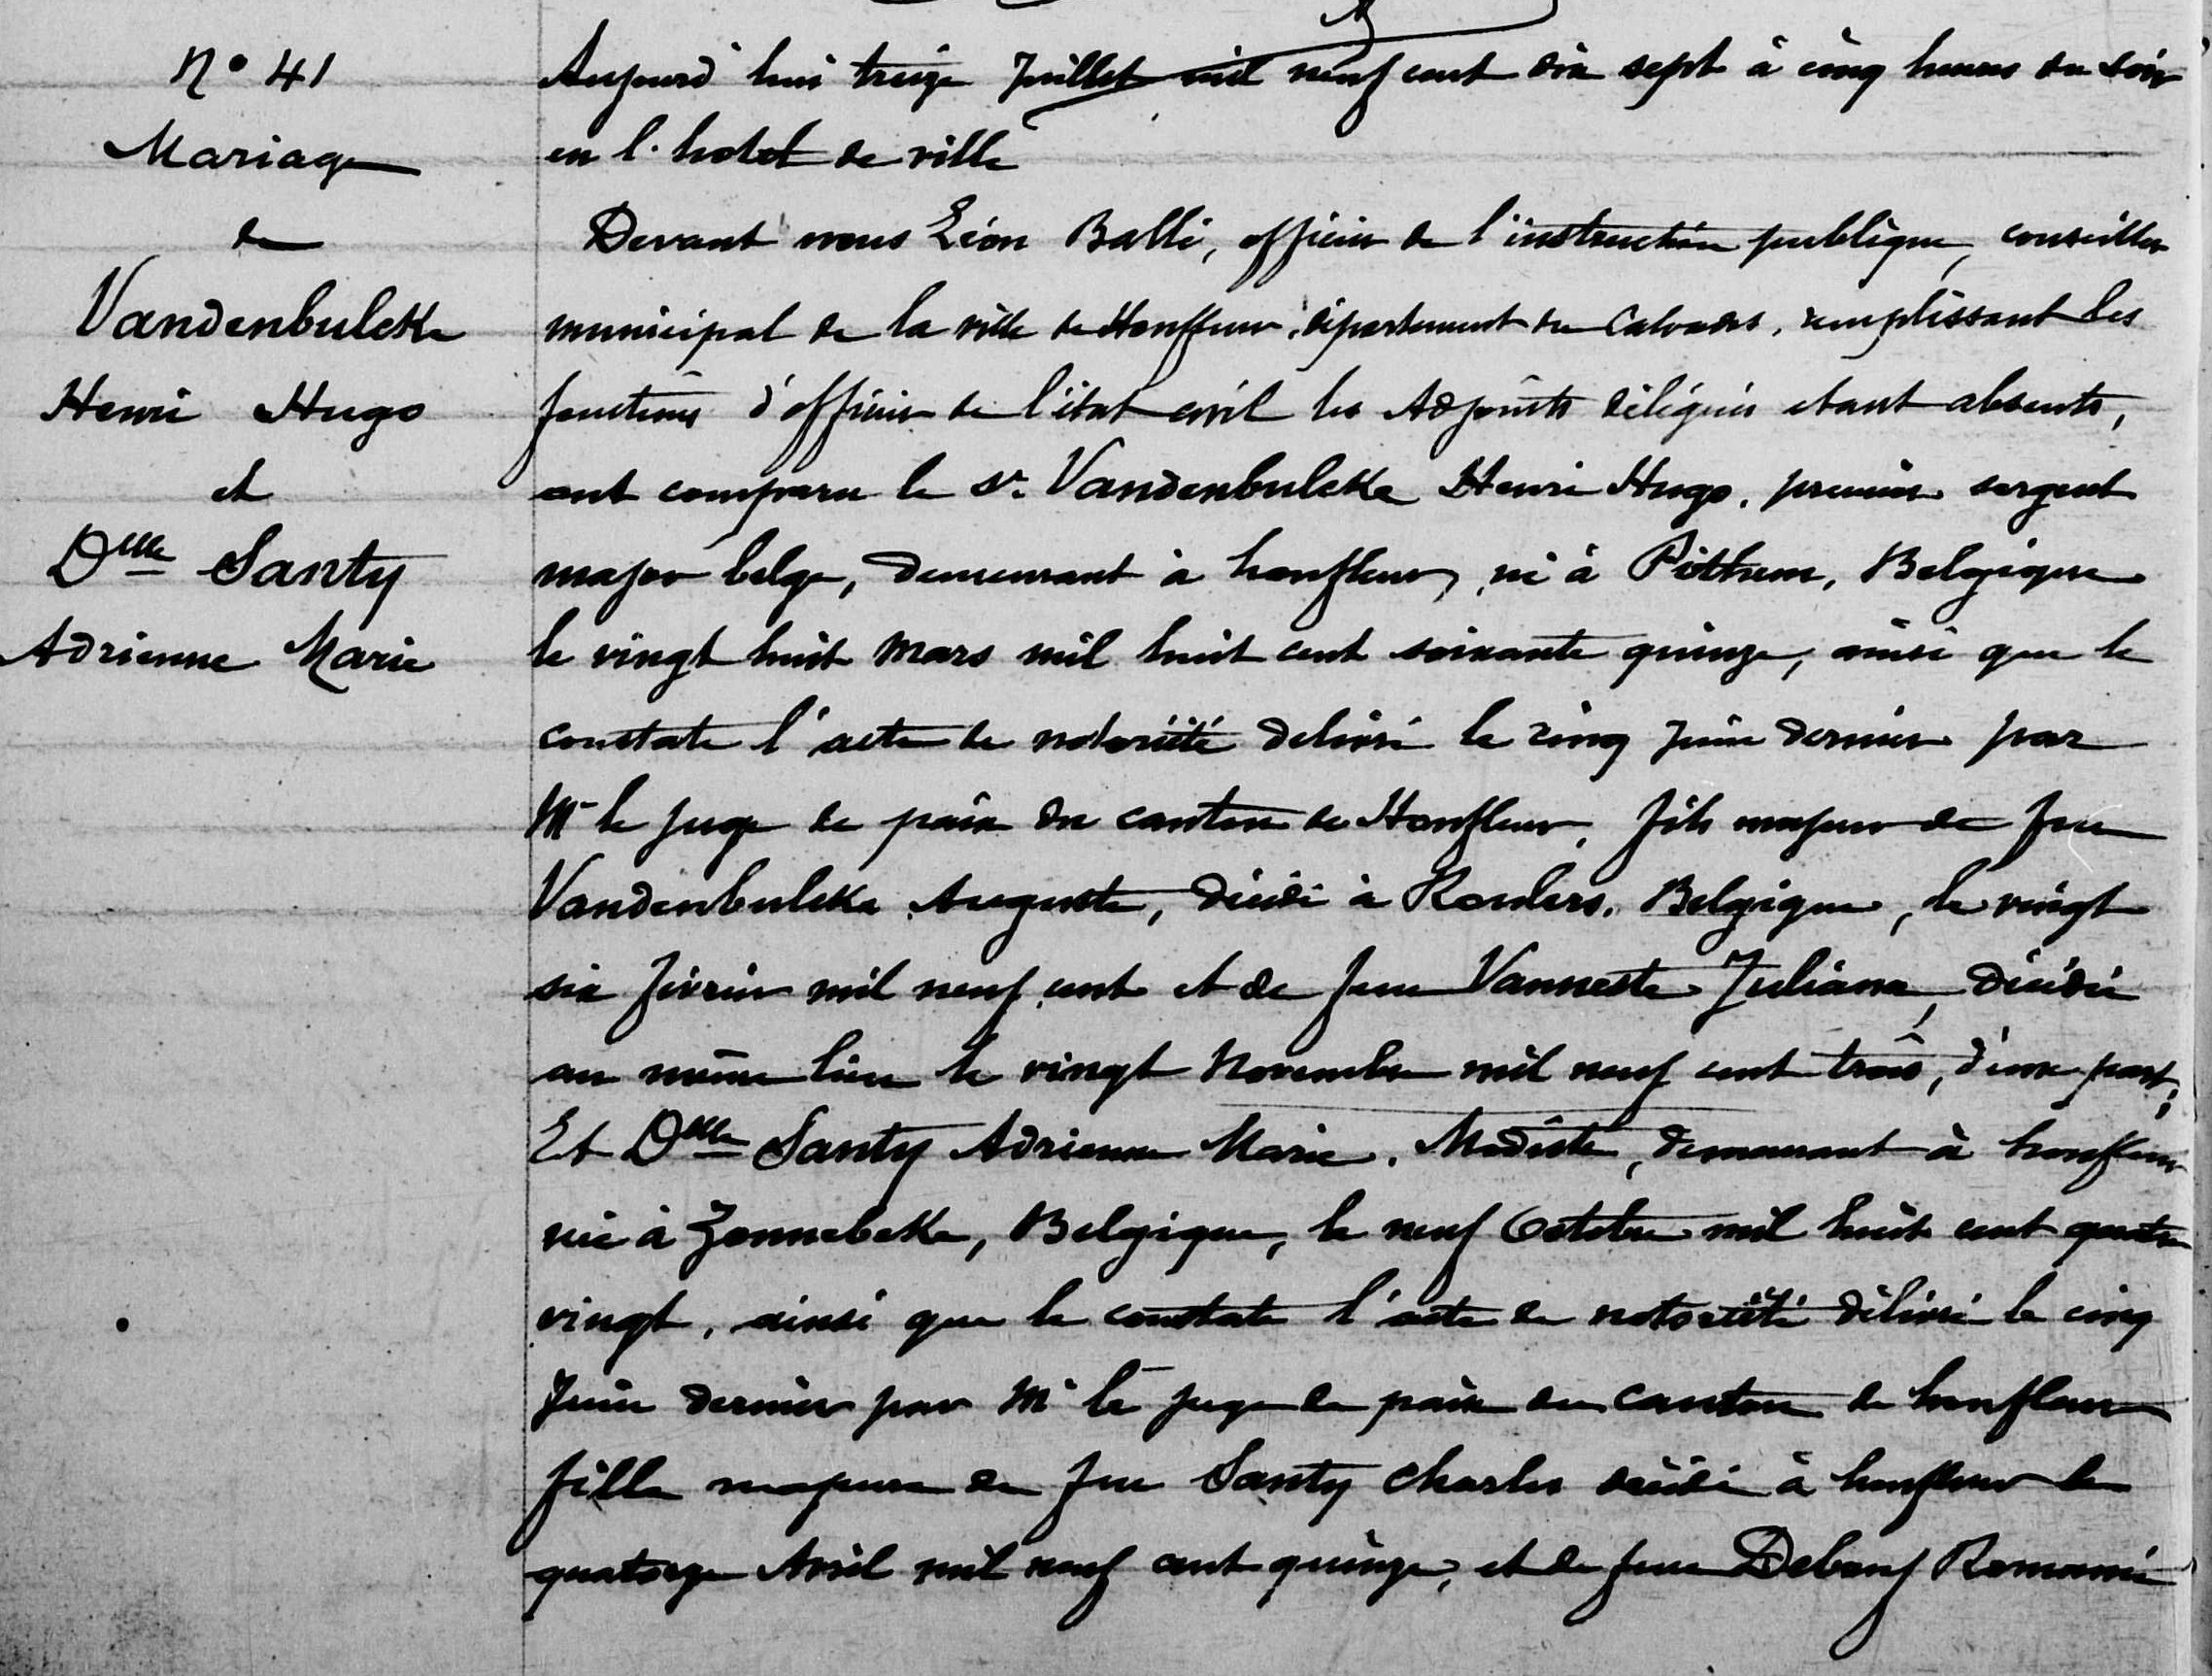 N° 41
Mariage
de
Vandenbulcke
Henri Hugo
et
Dlle Santy
Adrienne Marie
Aujourd'hui treize Juillet mil neuf cent dix sept à cinq heures du soir
en l'hotel de ville
Devant nous Léon Ballé, officier de l'instruction publique, conseiller
municipal de la ville de Honfleur, département du Calvados, remplissant les
fonctions d'officier de l'état civil les Adjoints délégués étant absents,
ont comparu le Sr. Vandenbulcke Henri Hugo, premier sergent
major belge, demeurant à honfleur, né à Pitthem, Belgique
le vingt huit Mars mil huit cent soixante quinze, ainsi que le
constate l'acte de notoriété délivré le cinq Juin dernier par
Mr le Juge de paix du canton de Honfleur, fils majeur de feu
Vandenbulcke Auguste, décédé à Roulers, Belgique, le vingt
six février mil neuf cent et de feue Vanneste Juliana, décédée
au même lieu le vingt Novembre mil neuf cent trois, d'une part;
Et Dlle Santy Adrienne Marie, Modiste, demeurant à honfleur
née à Zonnebeke, Belgique, le neuf Octobre mil huit cent quatre
vingt, ainsi que le constate l'acte de notoriété délivré le cinq
Juin dernier par Mr le juge de paix du canton de honfleur
fille majeure de feu Santy Charles décédé à honfleur le
quatorze Avril mil neuf cent quinze, et de feue Debeuf Romanie